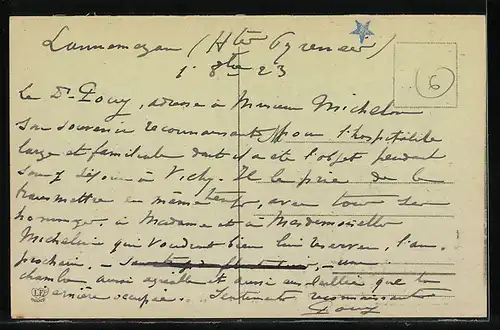 Lannemezan (Htes Pyrénées)
1 8bre 23
Le Dr Pouy, adresse à Monsieur Michelon
son souvenir reconnaissant pour l'hospitalité
large et familiale dont il a été l'objet pendant
son séjour à Vichy. Il le prie de le
transmettre en même temps, avec tous ses
hommages, à Madame et à Mesdemoiselles
Michelon qui voudront bien lui réserver, l'an
prochain, - une
chambre aussi agréable et aussi ensoleillée que la
dernière occupée. Sentiments reconnaissants
Pouy
6